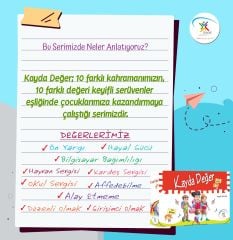 Bu Serimizde Neler Anlatıyoruz?
Kayda Değer; 10 farklı kahramanımızın,
10 farklı değeri keyifli serüvenler
eşliğinde çocuklarımıza kazandırmaya
çalıştığı serimizdir.
DEĞERLERİMİZ
Ön Yargı Hayal Gücü
Bilgisayar Bağımlılığı
Hayvan Sevgisi Kardeş Sevgisi
Okul Sevgisi Affedebilme
Alay Etmeme
Düzenli Olmak Girişimci Olmak
Kayda Değer